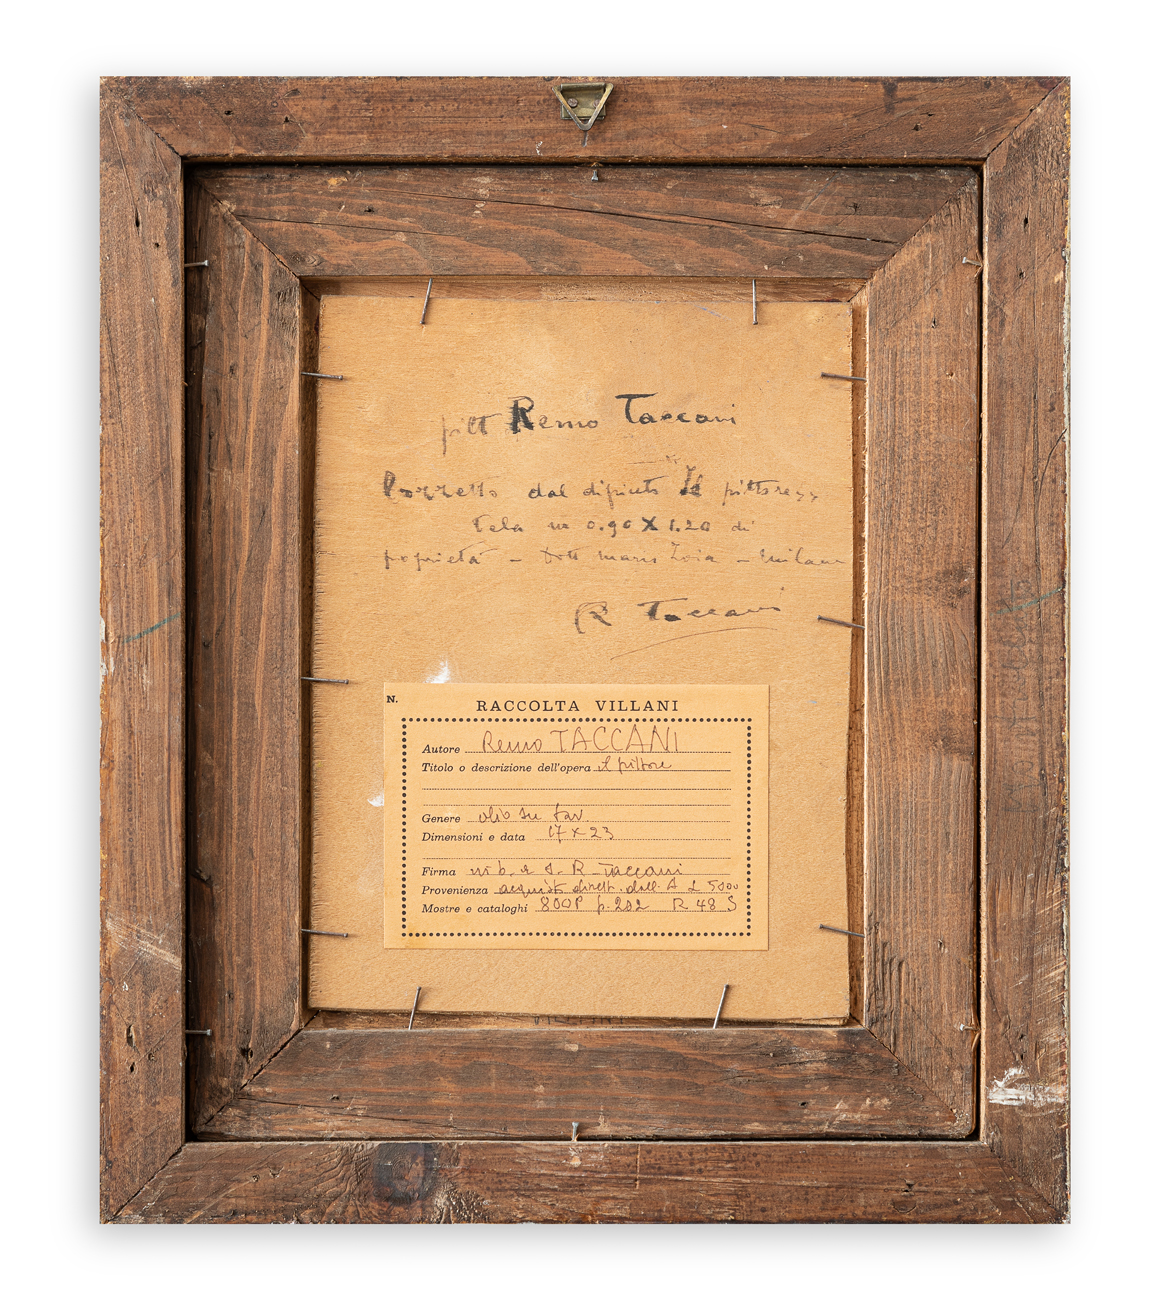 pitt Remo Taccani
Bozzetto dal dipinto Il pittore
tela m 0.90 X 1.20 di
proprietà - Dott Mario Zoia - Milano
R Taccani
N.
RACCOLTA VILLANI
Autore Remo TACCANI
Titolo o descrizione dell'opera il pittore
Genere olio su tav.
Dimensioni e data 17 x 23
Firma in b. a s. R Taccani
Provenienza acquist. dirett. dall. A L 5000
Mostre e cataloghi 800P p. 202 R 48 S